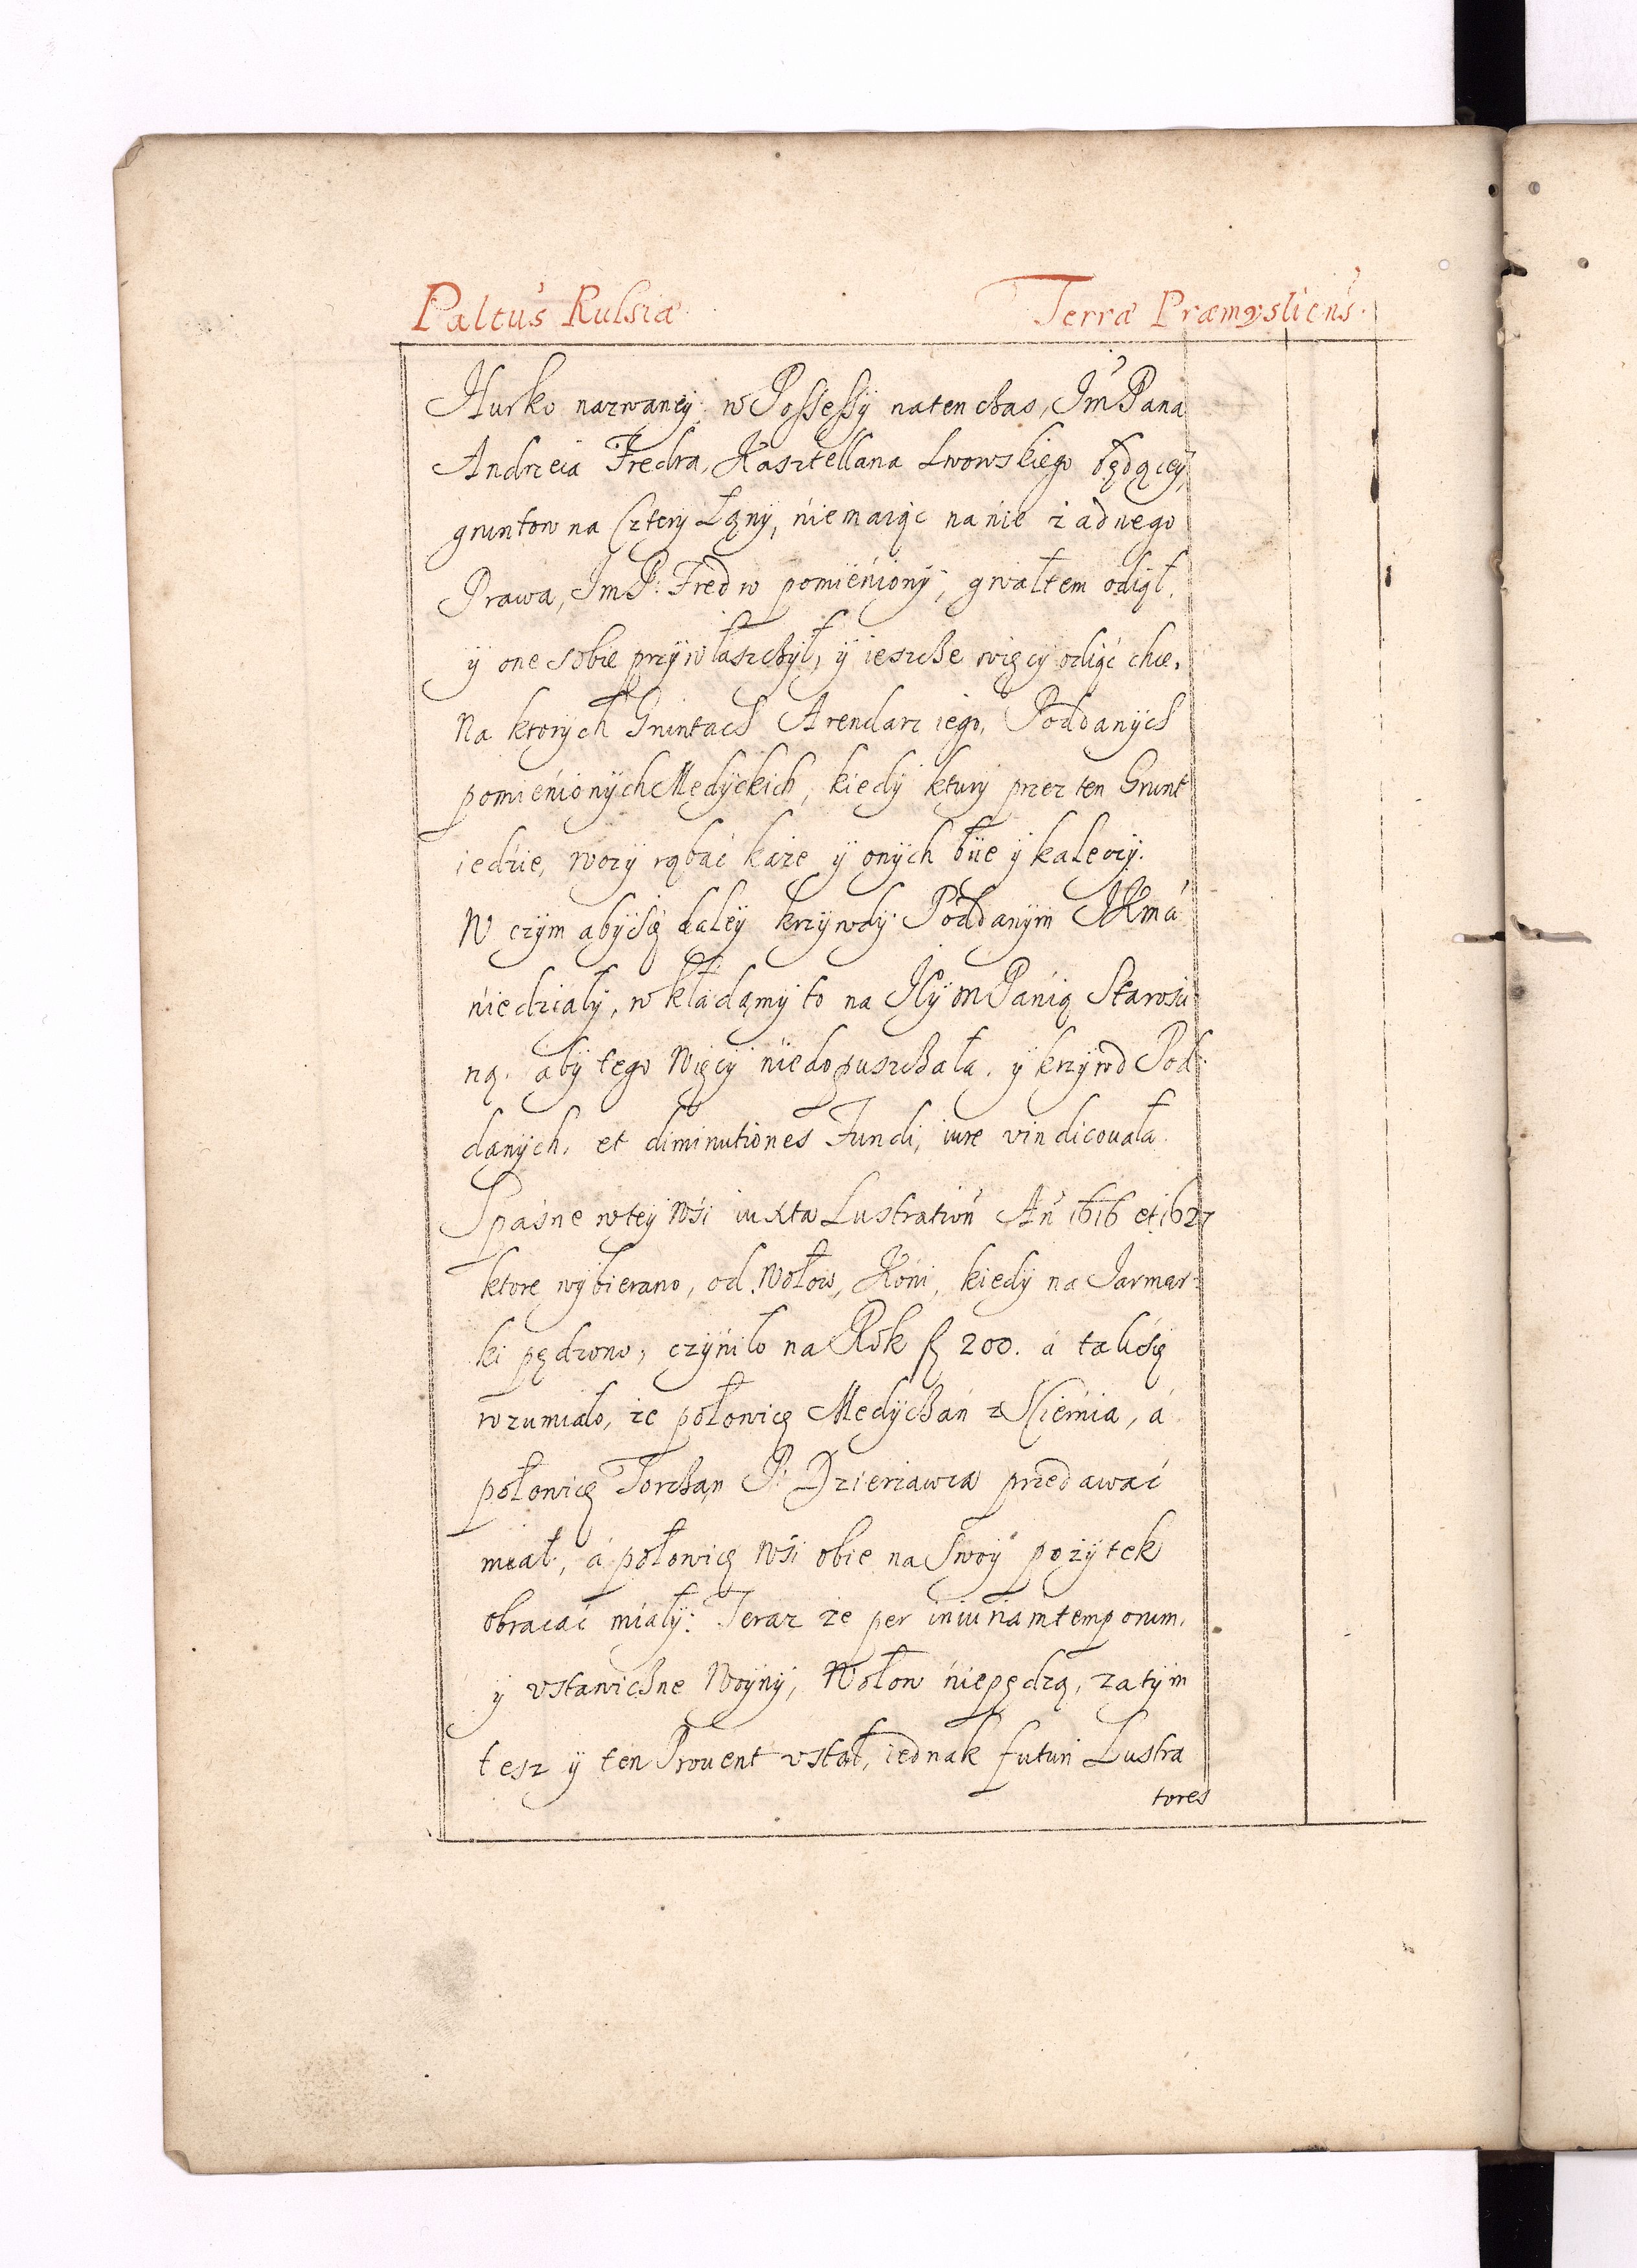 Paltus Russiæ Terræ Præmysliens.
Hurko nazwaney w Possessÿ natenczas, Jm̃ Pana
Andrzeia Fredra, Kasztellana Lwowskiego będącey,
gruntow na Cztery Łany, niemaiąc na nie żadnego
Prawa, Jm P. Fredro pomieniony, gwałtem odiął,
ÿ one sobie przywłaszczył, ÿ ieszcze więcy odiąć chce.
Na ktorych Gruntach Arendarz iego, Poddanych
pomienionych Medyckich, kiedy ktury przez ten Grunt
iedzie, wozy rąbać każe ÿ onych biie ÿ kaleczy.
W czym abysię daley krzywdy Poddanym JKm̃ci
niedziały, wkładamy to na Jey Mm Panią Starości
ną, aby tego więcy niedopuszczała, ÿ krzywd Pod
danych, et diminutiones Fundi, iure vindicowała.
Spasne wtey Wsi iuxta Lustration̄ An̄ 1616 et 1627
ktore wybierano, od Wołow, Koni, kiedy na Jarmar-
ki pędzono, czyniło na Rok fl 200. á takiśię
rozumiało, że połowicę Medyczan z Sieńia, á
połowicę Torczan P. Dzierżawca przedawać
miał, á połowicę Wsi obie na swoy pożytek
obracać miały: Teraz że per iniuriam temporum,
ÿ vstawiczne Woyny, Wołow niepędzą, zatym
tesz ÿ ten Prouent vstał, iednak futuri Lustra
tores